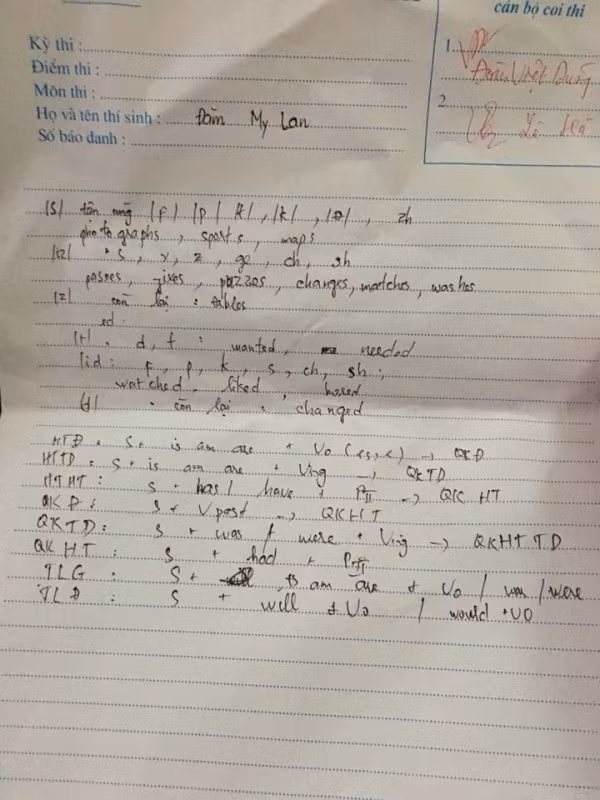 cán bộ coi thi
Kỳ thi :
Điểm thi :
Môn thi :
Họ và tên thí sinh : Đàm My Lan
Số báo danh :
1.
2.
|s| tận cùng |f| |p| |t| , |k| , , th
photographs , sports , maps
|iz| : s , x , z , ge , ch , sh
changes , matches , washes
|z| còn lại : tables
ed
|t| . d , t : wanted , needed
|id : f , p , k , s , ch , sh :
watched . liked ,
|d| . còn lại : changed
HTĐ : S + is am are + Vo (es, s) → QKĐ
HTTD : S + is am are + Ving → QKTD
HTHT : S + has / have + PII → QK HT
QKĐ : S + Vpast → QKHT
QKTD : S + was / were + Ving → QKHT TD
QKHT : S + had + PII
TLG : S + is am are + Vo / was / were
TLĐ : S + will + Vo / would + VO